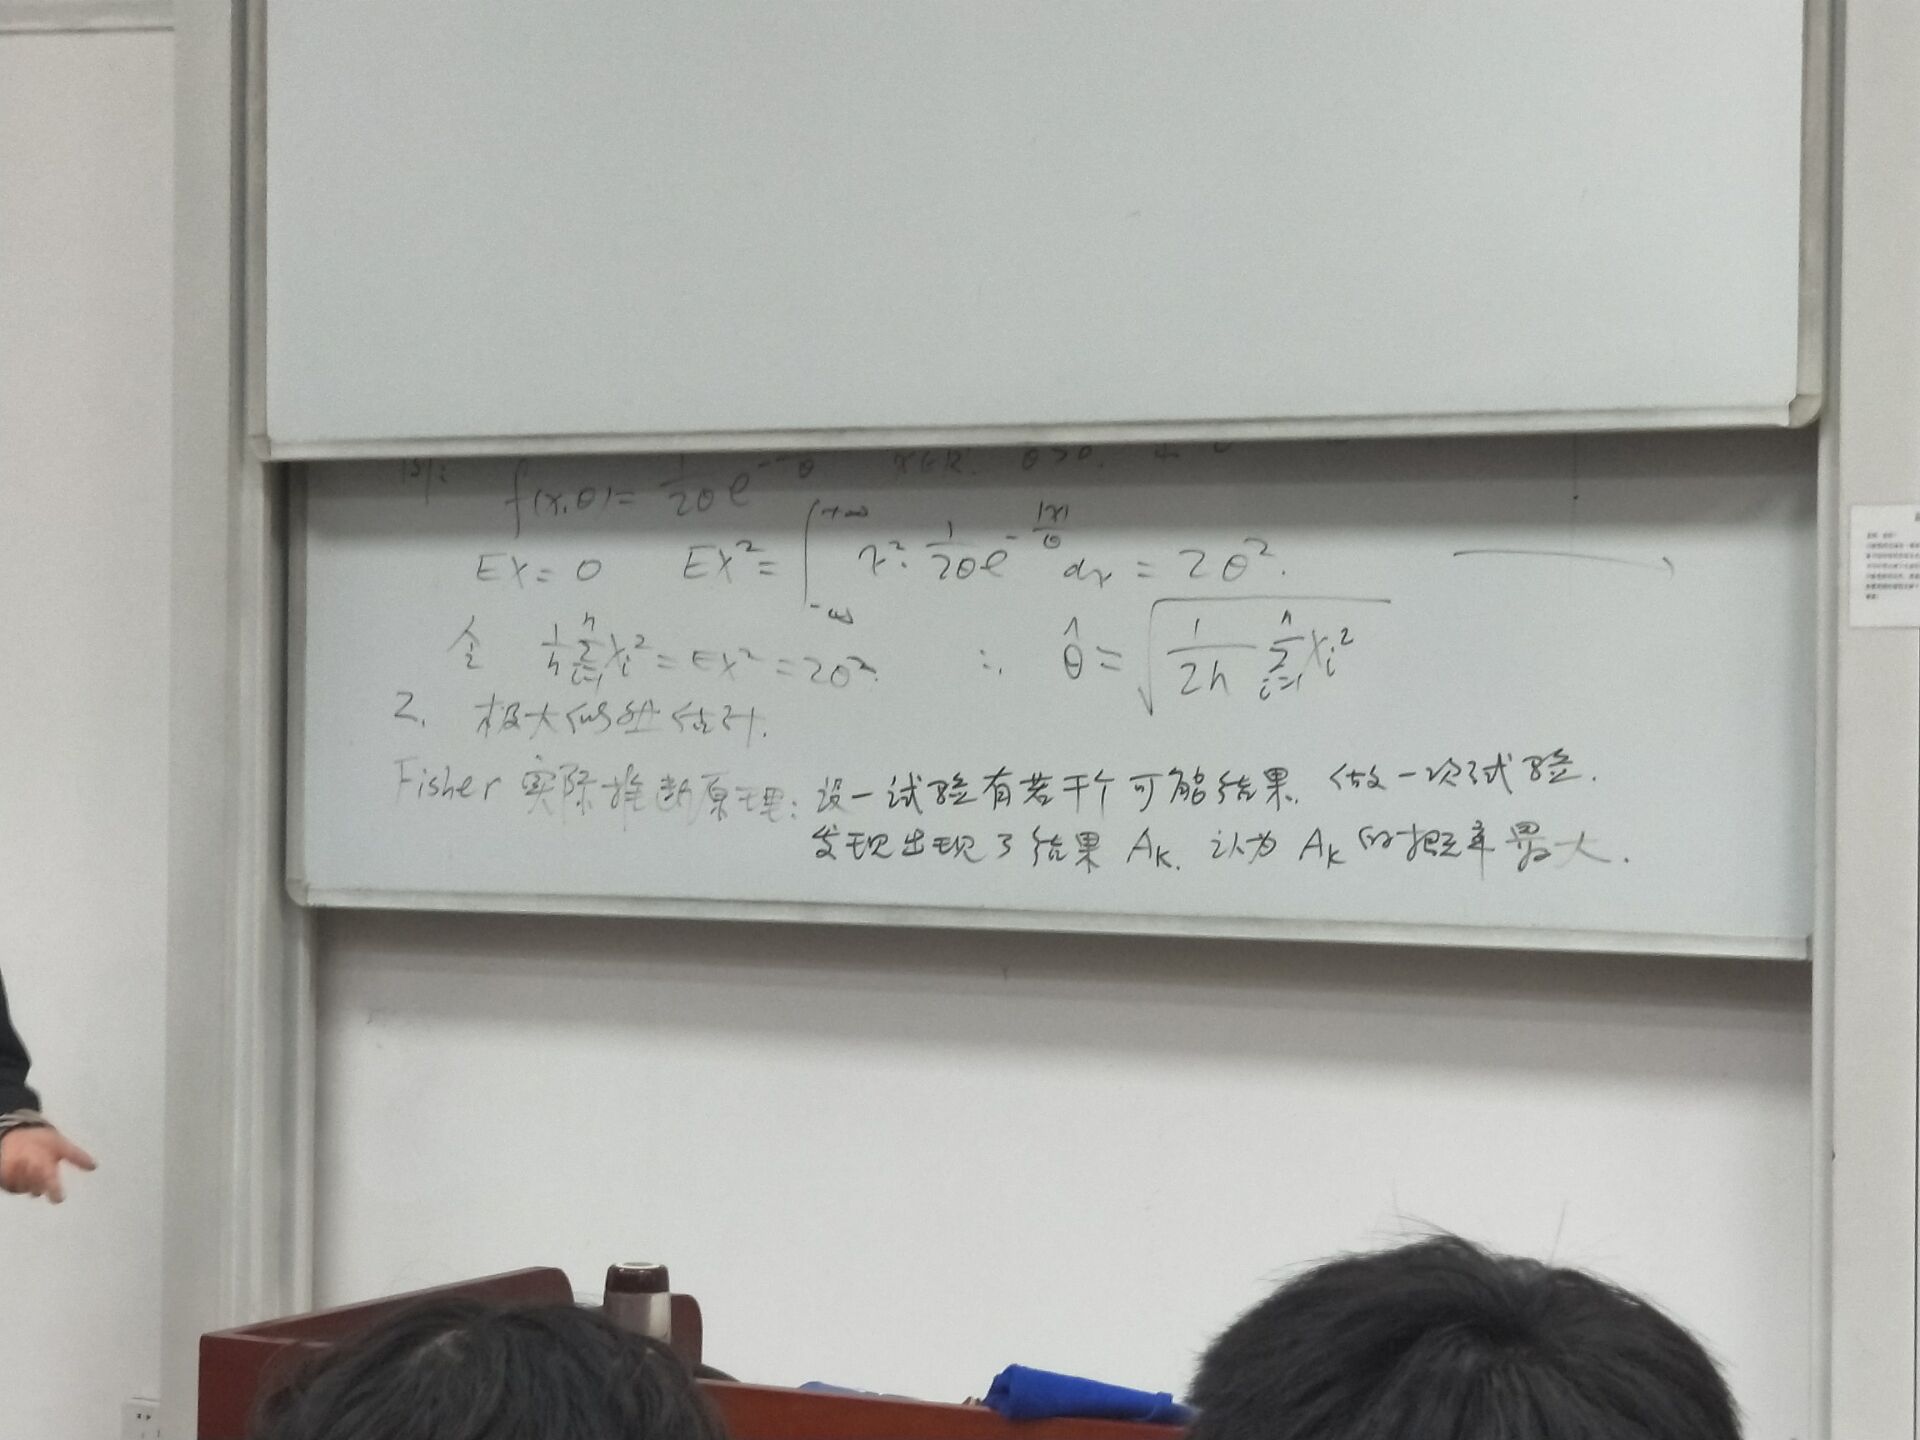 例: f(x,θ)= 1/2θ e^-|x|/θ x∈R, θ>0,
EX=0 EX²= ∫_{-∞}^{+∞} x²· 1/2θ e^{-|x|/θ} dx = 2θ².
令 1/n Σ_{i=1}^{n} Xi² = EX² = 2θ². ∴ θ̂ = √(1/2n Σ_{i=1}^{n} Xi²)
2. 极大似然估计.
Fisher 实际推断原理: 设一试验有若干个可能结果. 做一次试验.
发现出现了结果 AK. 认为 AK 的概率最大.